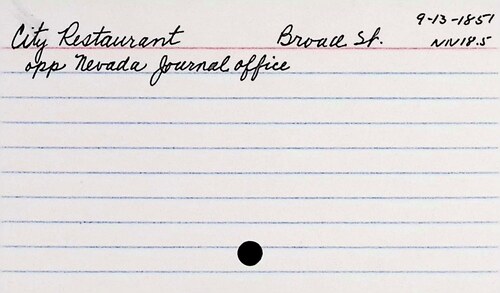 City Restaurant Broad St. 9-13-1851
NN18.5
opp Nevada Journal office